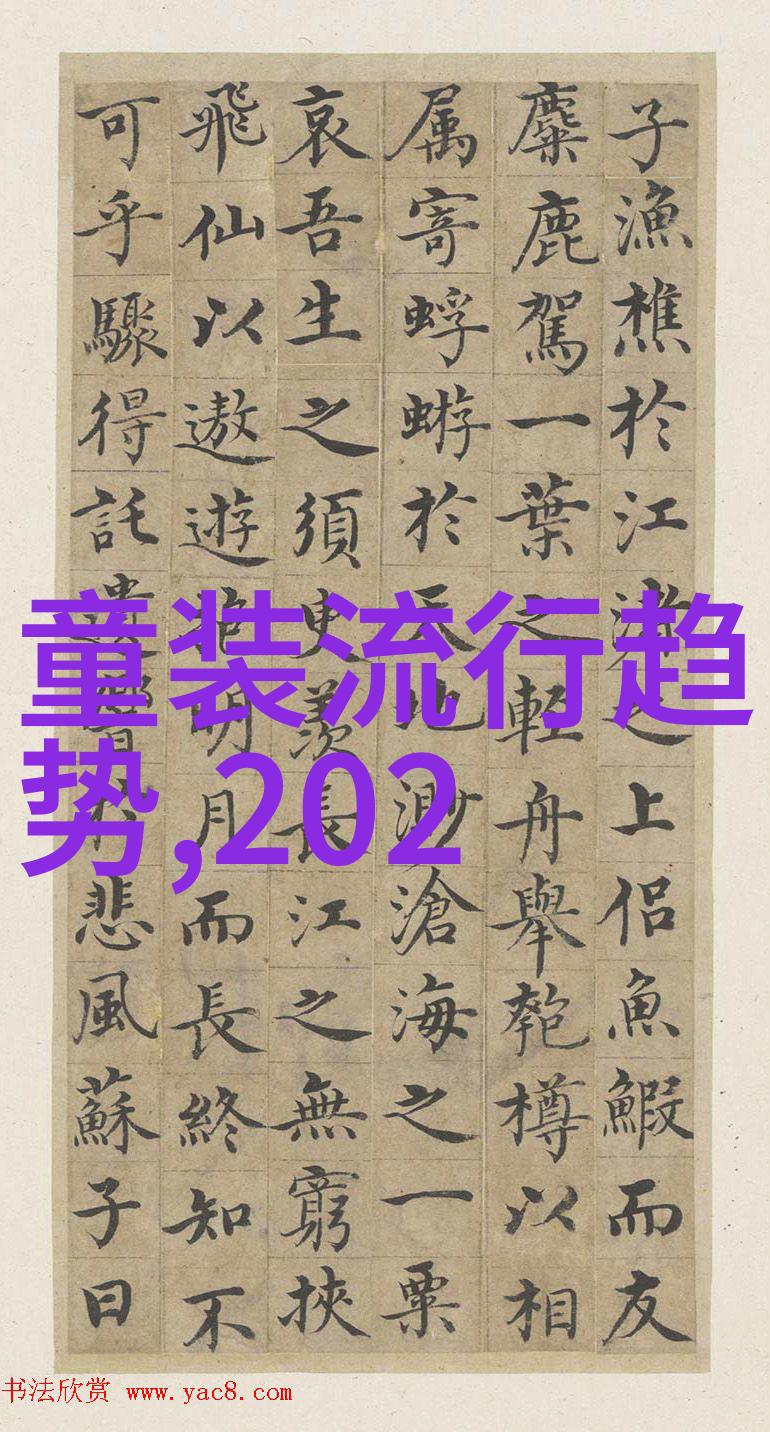 子漁樵於江渚之上侣魚鰕而友
麋鹿駕一葉之輕舟舉匏樽以相
属寄蜉蝣於天地渺滄海之一粟
哀吾生之須臾羨長江之無窮挾
飛仙以遨遊抱明月而長終知不
可乎驟得託遺響於悲風蘇子曰
童装流行趋
势,202
书法欣赏 www.yac8.com